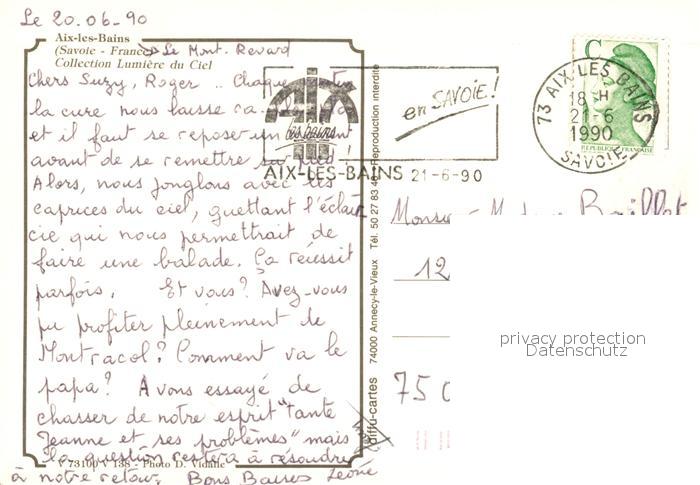 Le 20.06-90
Aix-les-Bains
(Savoie - France) Le Mont. Revard
Collection Lumière du Ciel
Chers Suzy, Roger .. Chaque
la cure nous laisse
et il faut se reposer un
avant de se remettre
Alors, nous jonglons avec les
caprices du ciel, guettant l'éclair
cie qui nous permettrait de
faire une balade. Ça réussit
parfois. Et vous? Avez-vous
pu profiter pleinement de
Montracol? Comment va le
papa? Avons essayé de
chasser de notre esprit "tante
Jeanne et ses problèmes" mais
la question restera à résoudre
V 73100 V 138 - Photo D. Vidalie
à notre retour. Bons Baisers Léonie
AIX
les bains
en SAVOIE!
AIX-LES-BAINS 21-6-90
C
RÉPUBLIQUE FRANÇAISE
73 AIX LES BAINS
18 H
21-6
1990
SAVOIE
diffu-cartes 74000 Annecy-le-Vieux Tél. 50 27 83 40 Reproduction interdite
12
75
privacy protection
Datenschutz